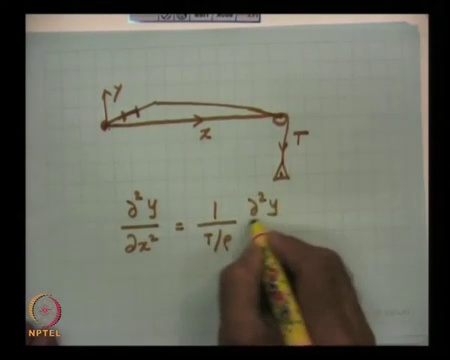 y
x
T
∂²y/∂x² = 1/(T/ρ) ∂²y
NPTEL